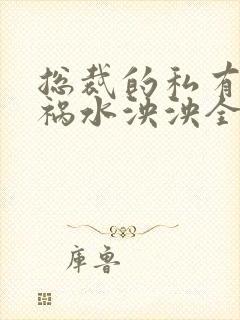 总裁的私有
祸水泱泱全
库鲁